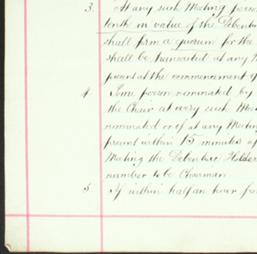 3. At any such Meeting persons
tenth in value of the Debentu
shall form a quorum for the
shall be transacted at any M
present at the commencement of
4. Some person nominated by
the Chair at every such Mee
nominated or if at any Meeting
present within 15 minutes of
Meeting the Debenture Holders
number to be Chairman
5. If within half an hour fro